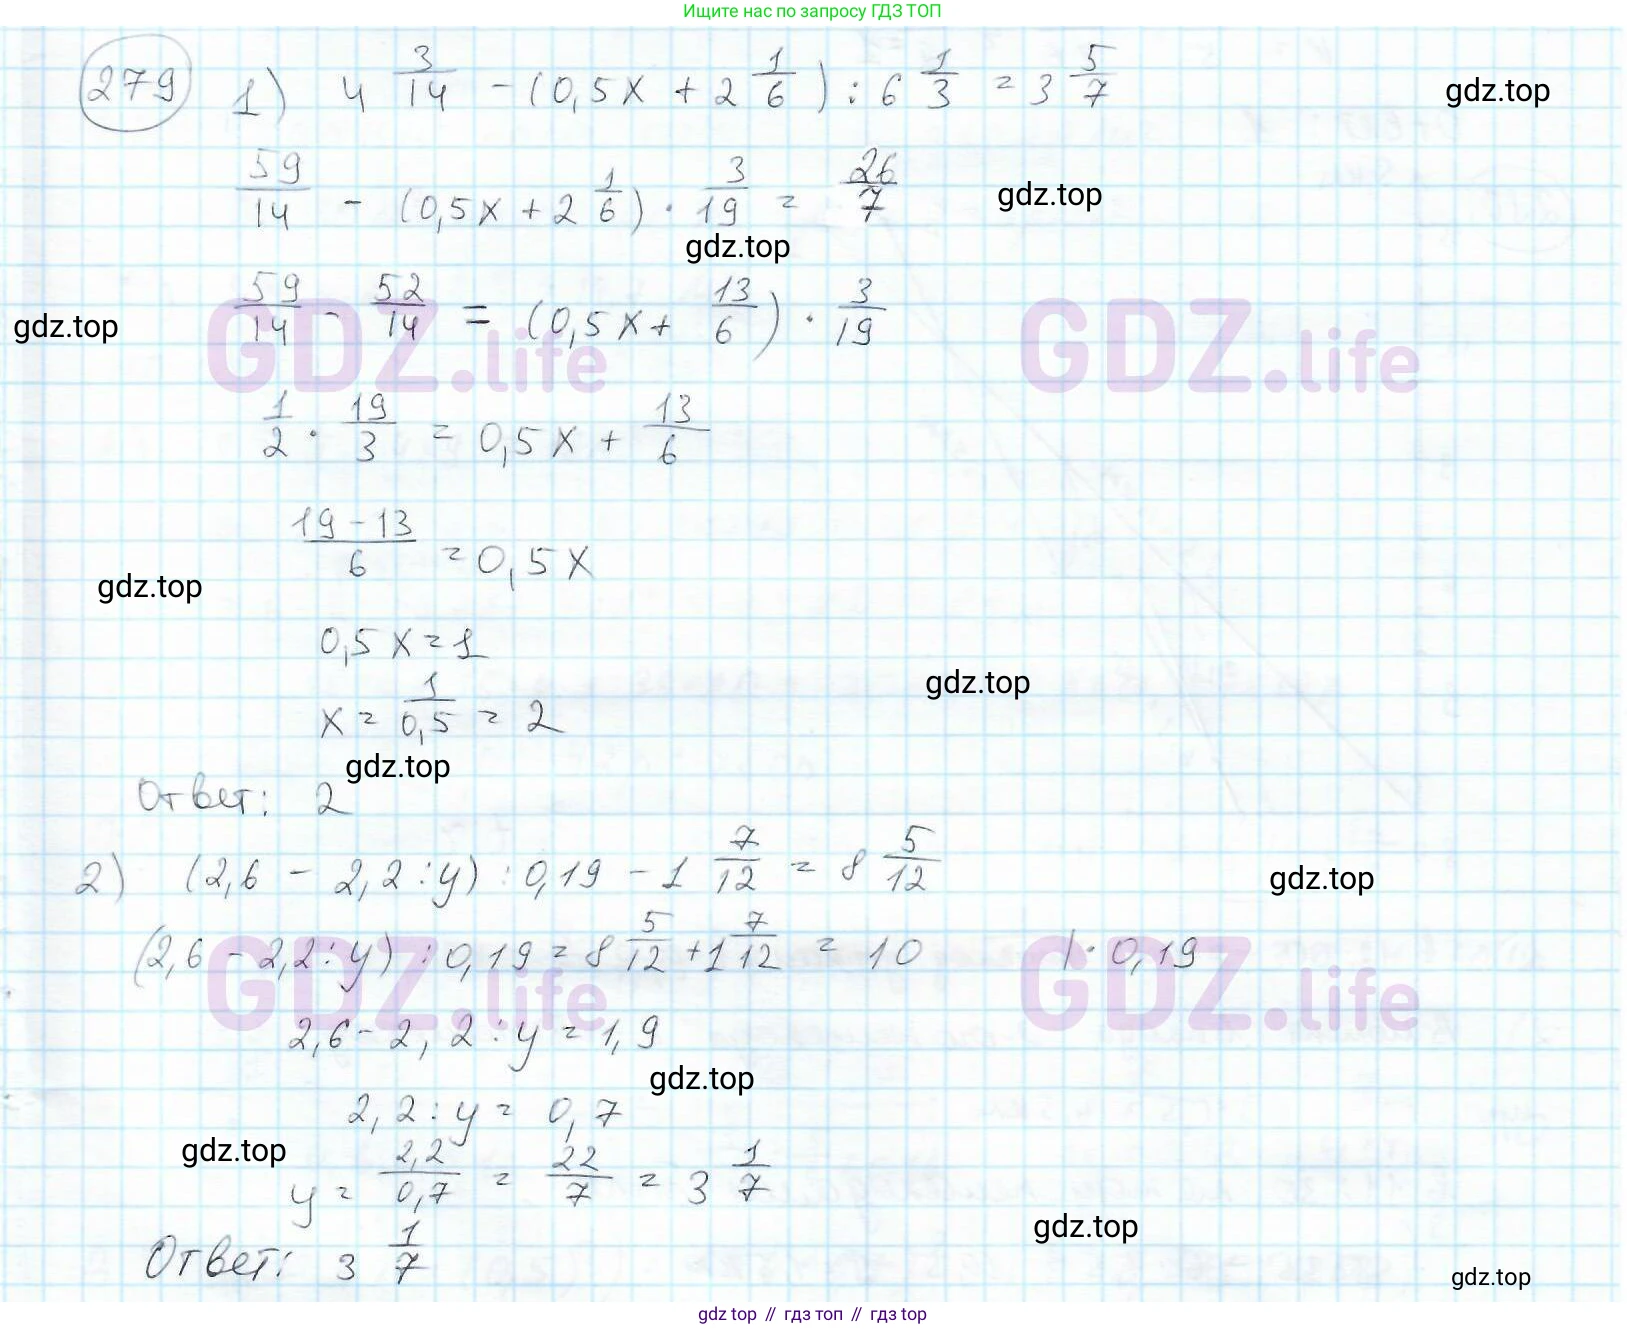 Ищите нас по запросу ГДЗ ТОП
279 1) 4 3/14 - (0,5x + 2 1/6) : 6 1/3 = 3 5/7
gdz.top
59/14 - (0,5x + 2 1/6) · 3/19 = 26/7
gdz.top
gdz.top
59/14 - 52/14 = (0,5x + 13/6) · 3/19
gdz.top
GDZ.life
GDZ.life
1/2 · 19/3 = 0,5x + 13/6
19-13/6 = 0,5x
gdz.top
0,5x = 1
gdz.top
x = 1/0,5 = 2
gdz.top
Ответ: 2
2) (2,6 - 2,2 : y) : 0,19 - 1 7/12 = 8 5/12
gdz.top
(2,6 - 2,2 : y) : 0,19 = 8 5/12 + 1 7/12 = 10 | · 0,19
GDZ.life
GDZ.life
2,6 - 2,2 : y = 1,9
gdz.top
2,2 : y = 0,7
gdz.top
y = 2,2/0,7 = 22/7 = 3 1/7
gdz.top
Ответ: 3 1/7
gdz.top
gdz top // гдз топ // гдз top